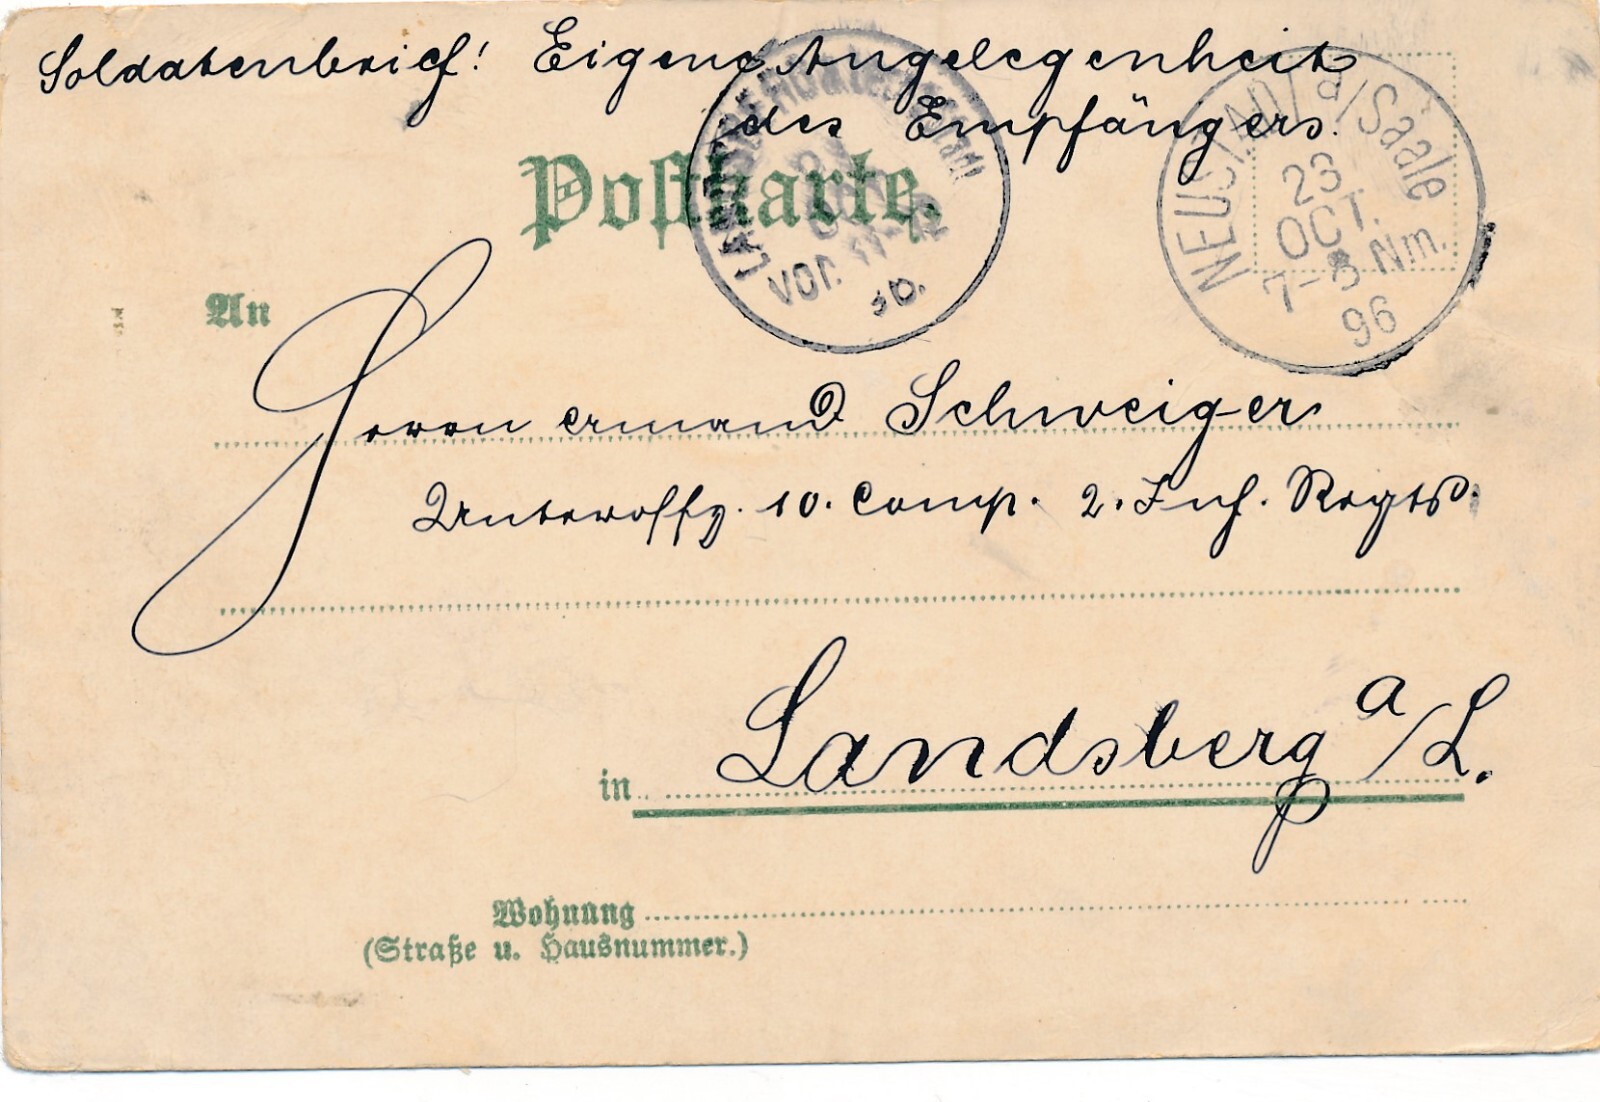 Soldatenbrief! Eigene Angelegenheit
des Empfängers.
Postkarte.
NEUSTADT a/Saale
23
OCT.
7-8 Nm.
96
LANDSBERG
Vor.
An
Herrn Hermann Schweiger
Unteroffz. 10. Comp. 2. Inf. Regts.
in Landsberg a/L.
Wohnung
(Straße u. Hausnummer.)